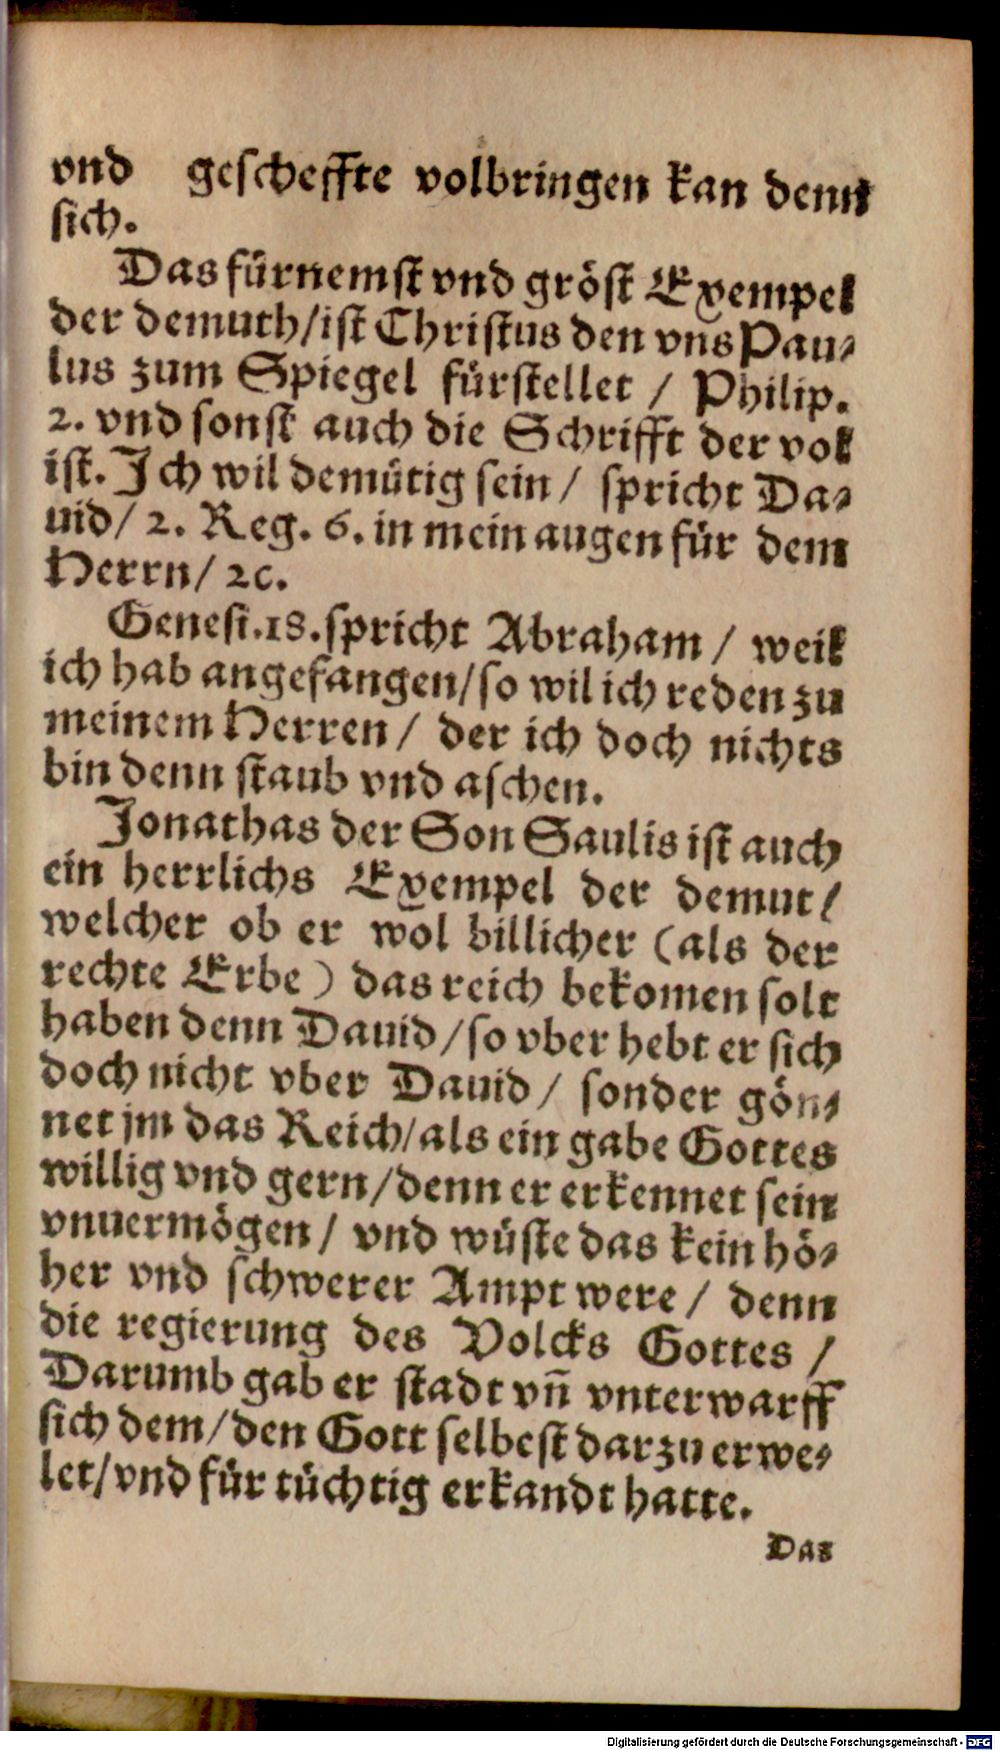 vnd gescheffte volbringen kan denn
sich.
Das fürnemst vnd gröst Exempel
der demuth/ist Christus den vns Pau⸗
lus zum Spiegel fürstellet / Philip.
2. vnd sonst auch die Schrifft der vol
ist. Ich wil demütig sein / spricht Da⸗
uid/ 2. Reg. 6. in mein augen für dem
Herrn/ ꝛc.
Genesi.18.spricht Abraham / weil
ich hab angefangen/so wil ich reden zu
meinem Herren / der ich doch nichts
bin denn staub vnd aschen.
Jonathas der Son Saulis ist auch
ein herrlichs Exempel der demut/
welcher ob er wol billicher (als der
rechte Erbe) das reich bekomen solt
haben denn Dauid/so vber hebt er sich
doch nicht vber Dauid / sonder gön⸗
net jm das Reich/als ein gabe Gottes
willig vnd gern/denn er erkennet sein
vnuermögen / vnd wüste das kein hö⸗
her vnd schwerer Ampt were / denn
die regierung des Volcks Gottes /
Darumb gab er stadt vñ vnterwarff
sich dem/den Gott selbest darzu erwe⸗
let/vnd für tüchtig erkandt hatte.
Das
Digitalisierung gefördert durch die Deutsche Forschungsgemeinschaft - DFG